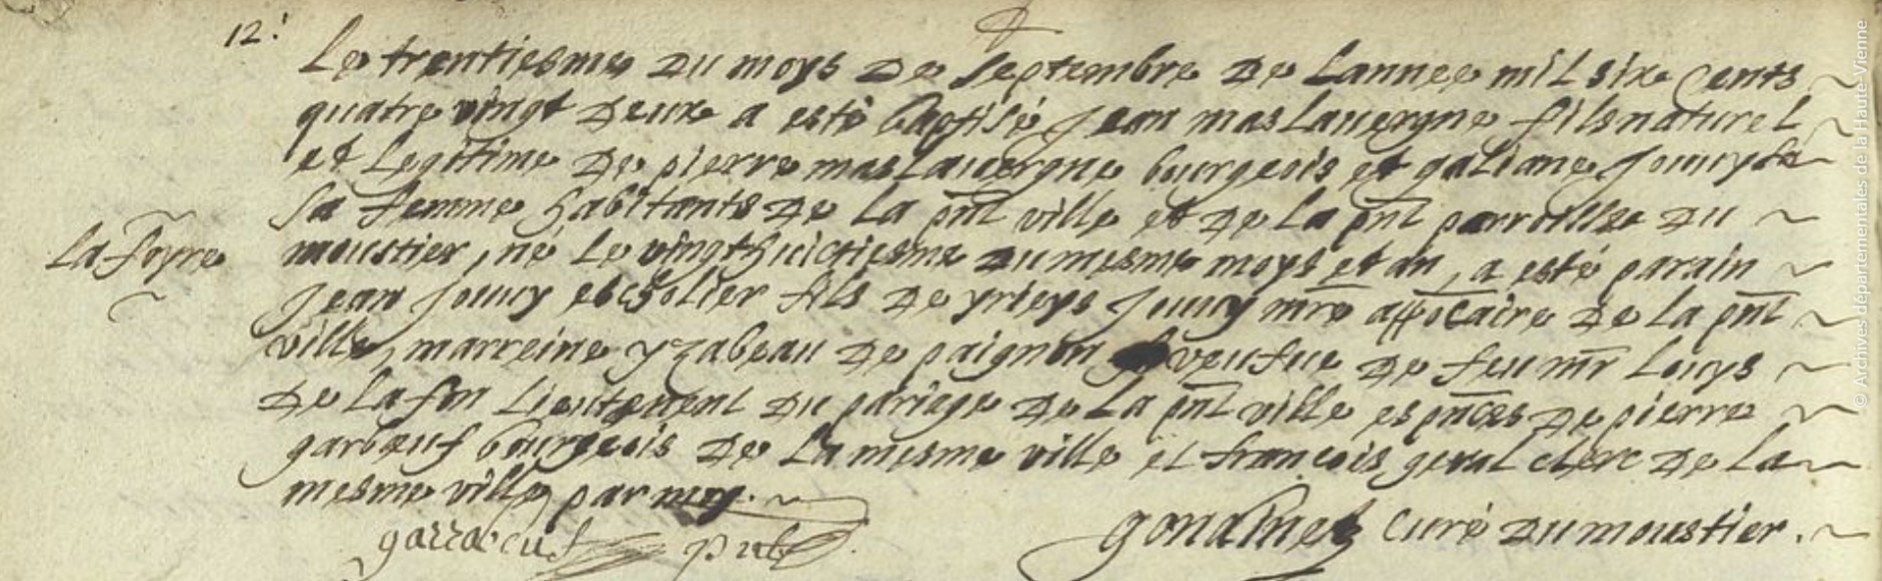 12.
Le trentiesme du moys de septembre de Lannee mil sixe cents
quatre vingt deuxe a esté baptisé Jean maslauergne fils naturel
et Legitime de pierre maslauergne bourgeois et galiane Joucyde
sa femme habitants de La pnt ville et de La pnt parroisse du
La foyre
moustier, né Le vingthuictiesme du mesme moys et an, a esté parain
Jean Jouuy eschollier fils de yrieys Jouuy mre appoticaire de La pnt
ville, marreine yzabeau de paignon veufue de feu mr Louys
de Lafon Lieutenent du pariage de La pnt ville es pnces de pierre
garbœuf bourgeois de La mesme ville et françois clerc de La
mesme ville par moy.
garrabeuf
Curé du moustier.
© Archives départementales de la Haute-Vienne